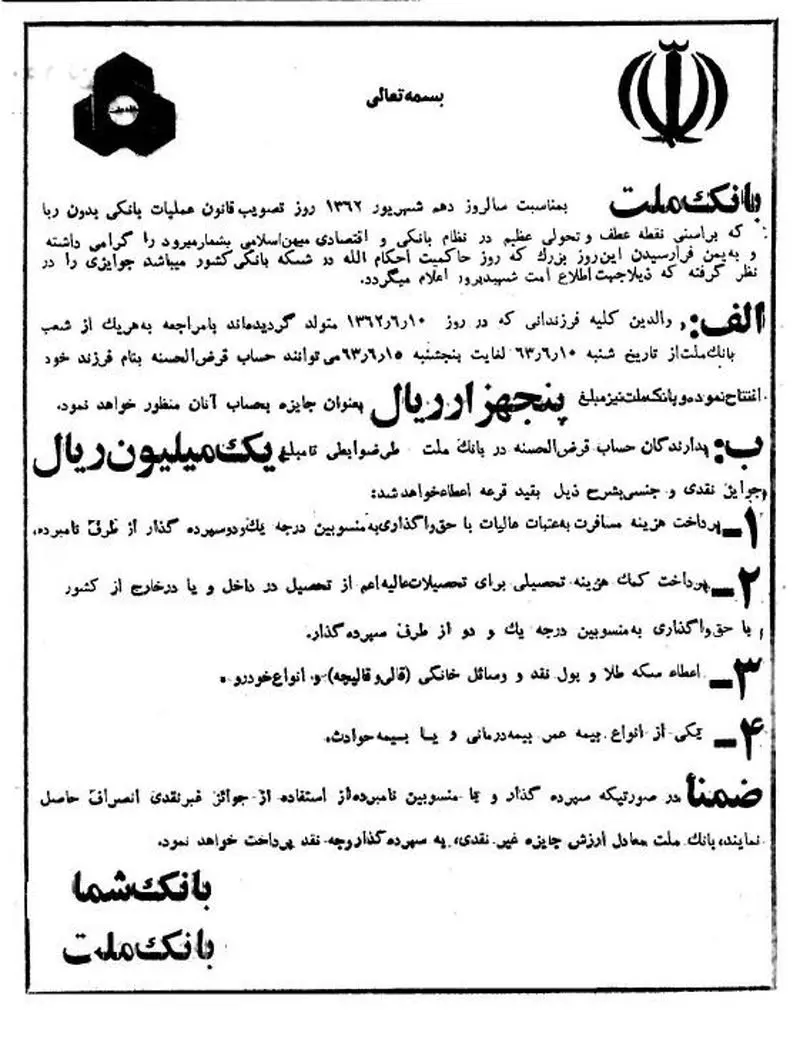 بسمه تعالی
بانک ملت بمناسبت سالروز دهم شهریور ۱۳۶۲ روز تصویب قانون عملیات بانکی بدون ربا
که براستی نقطه عطف و تحولی عظیم در نظام بانکی و اقتصادی میهن اسلامی بشمار میرود را گرامی داشته
و به یمن فرارسیدن این روز بزرگ که روز حاکمیت احکام الله در شبکه بانکی کشور میباشد جوایزی را در
نظر گرفته که ذیلا جهت اطلاع امت شهیدپرور اعلام میگردد.
الف: والدین کلیه فرزندانی که در روز ۱۳۶۲٫۶٫۱۰ متولد گردیده‌اند با مراجعه به هریک از شعب
بانک ملت از تاریخ شنبه ۶۳٫۶٫۱۰ لغایت پنجشنبه ۶۳٫۶٫۱۵ می‌توانند حساب قرض‌الحسنه بنام فرزند خود
افتتاح نموده و بانک ملت نیز مبلغ پنجهزار ریال بعنوان جایزه بحساب آنان منظور خواهد نمود.
ب: بدارندگان حساب قرض‌الحسنه در بانک ملت طی ضوابطی تا مبلغ یک میلیون ریال
جوایز نقدی و جنسی بشرح ذیل بقید قرعه اعطاء خواهد شد:
۱- پرداخت هزینه مسافرت به عتبات عالیات با حق واگذاری به منسوبین درجه یک و دو سپرده گذار از طرف نامبرده.
۲- پرداخت کمک هزینه تحصیلی برای تحصیلات عالیه اعم از تحصیل در داخل و یا در خارج از کشور
با حق واگذاری به منسوبین درجه یک و دو از طرف سپرده گذار.
۳- اعطاء سکه طلا و پول نقد و وسائل خانگی (قالی و قالیچه) و انواع خودرو.
۴- یکی از انواع بیمه عمر، بیمه درمانی و یا بیمه حوادث.
ضمناً در صورتیکه سپرده گذار و یا منسوبین نامبرده از استفاده از جوائز غیرنقدی انصراف حاصل
نمایند، بانک ملت معادل ارزش جایزه غیر نقدی، به سپرده گذار وجه نقد پرداخت خواهد نمود.
بانک شما
بانک ملت